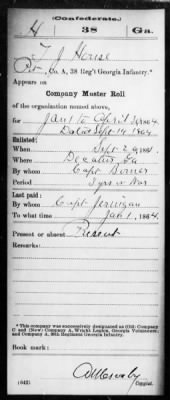 (Confederate.)
H 38 Ga.
T J House
Pvt, Co. A, 38 Reg't Georgia Infantry.*
Appears on
Company Muster Roll
of the organization named above,
for Jan 1 to April 30, 1864.
Dated Sept 14 1864
Enlisted:
When Sept 2, 1861.
Where Decatur, Ga
By whom Capt
Period 3 yrs or War
Last paid:
By whom Capt Jernigan
To what time Jan 1, 1864.
Present or absent Present
Remarks:
*This company was successively designated as (Old) Company
C and (New) Company A, Wright Legion, Georgia Volunteers,
and Company A, 38th Regiment Georgia Infantry.
Book mark:
(642) Copyist.